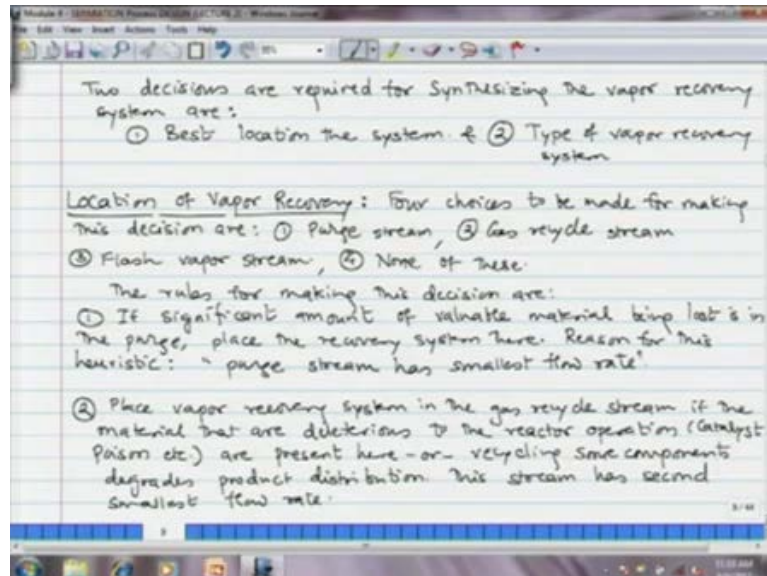 Module 4 - SEPARATION Process DESIGN (LECTURE 2) - Windows Journal
File Edit View Insert Actions Tools Help
Two decisions are required for Synthesizing the vapor recovery
system are:
① Best location the system & ② Type of vapor recovery
system
Location of Vapor Recovery: Four choices to be made for making
this decision are: ① Purge stream, ② Gas recycle stream
③ Flash vapor stream, ④ None of these.
The rules for making this decision are:
① If significant amount of valuable material being lost is in
the purge, place the recovery system here. Reason for this
heuristic: "purge stream has smallest flow rate".
② Place vapor recovery system in the gas recycle stream if the
material that are deleterious to the reactor operation (Catalyst
Poison etc.) are present here -or- recycling some components
degrades product distribution. This stream has second
smallest flow rate.